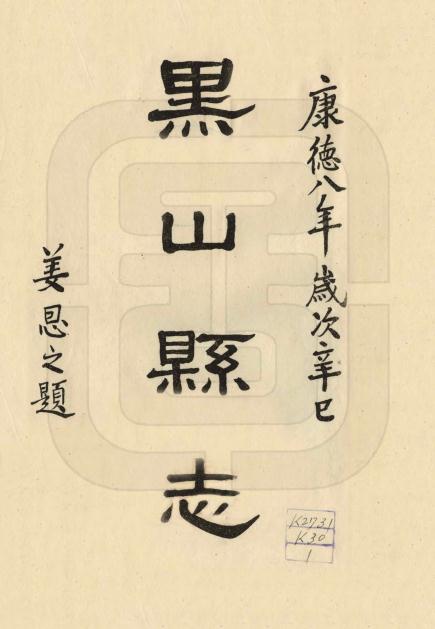 康德八年歲次辛巳
黑山縣志
姜恩之題
K2731
K30
1